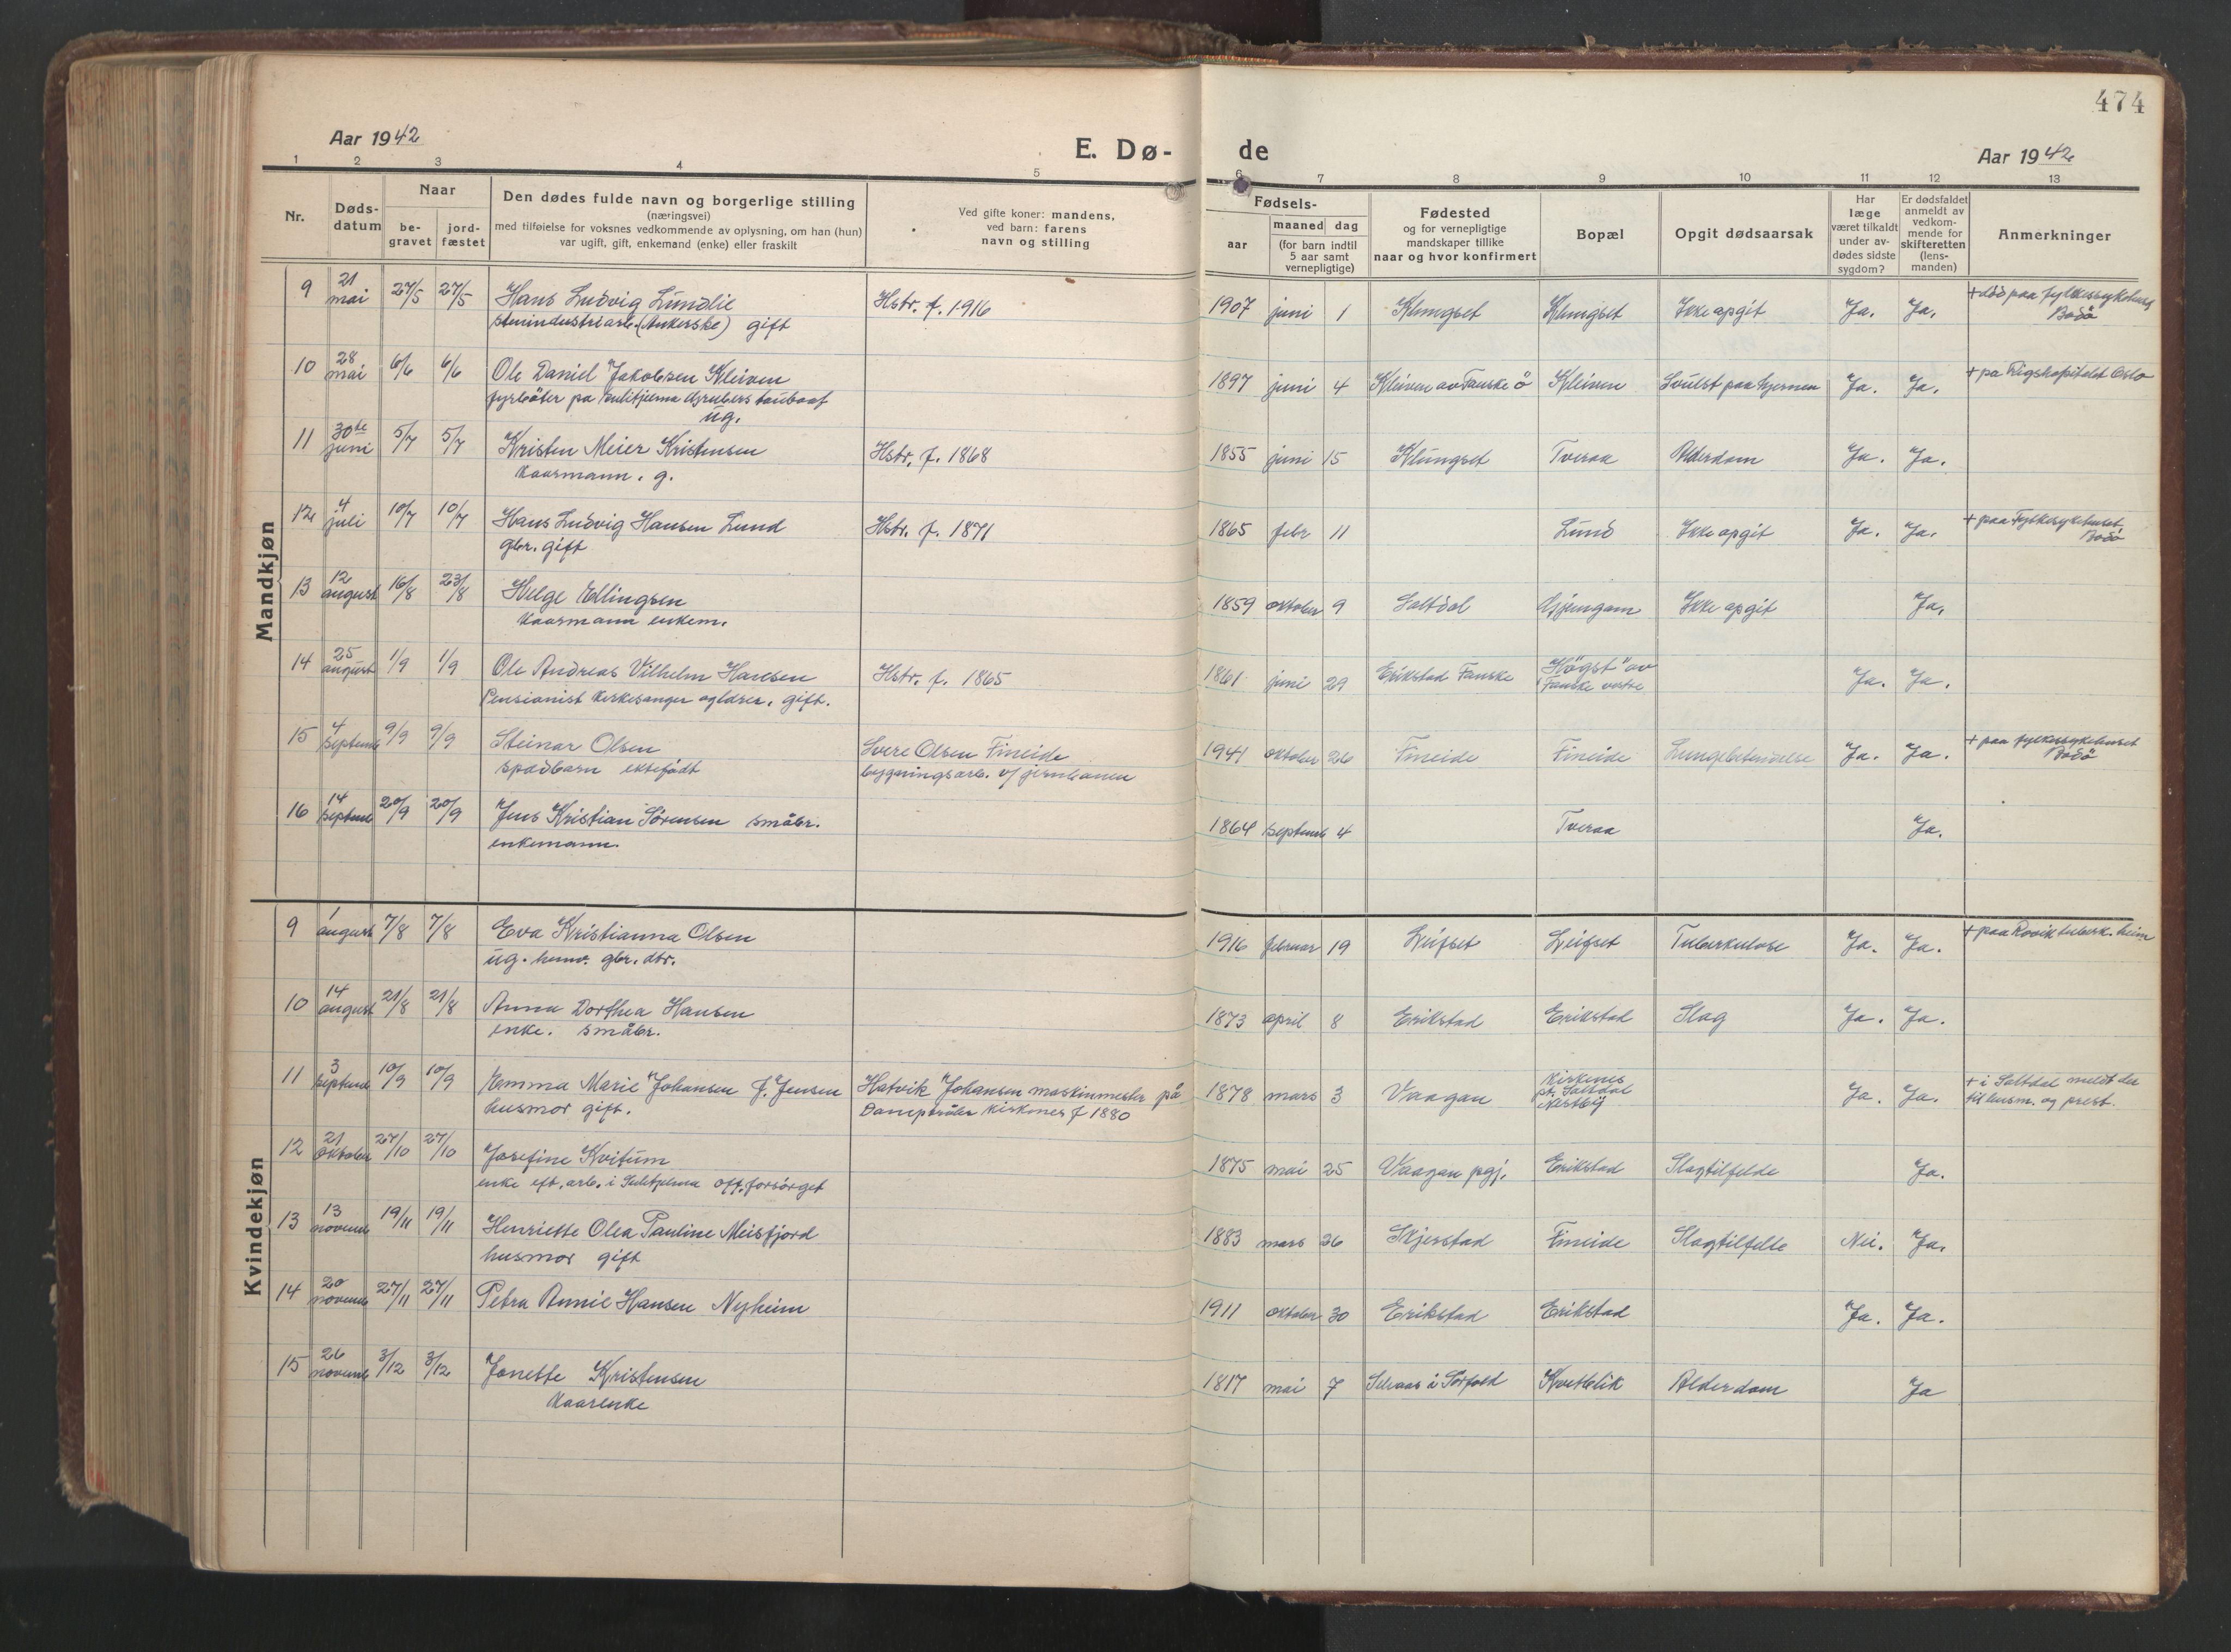 474
Aar 1942
E. Dø-
de
Aar 1942
1 2 3 4 5 6 7 8 9 10 11 12 13
Nr.
Døds-
datum
Naar
be-
gravet
jord-
fæstet
Den dødes fulde navn og borgerlige stilling
(næringsvei)
med tilføielse for voksnes vedkommende av oplysning, om han (hun)
var ugift, gift, enkemand (enke) eller fraskilt
Ved gifte koner: mandens,
ved barn: farens
navn og stilling
Fødsels-
aar
maaned dag
(for barn indtil
5 aar samt
vernepligtige)
Fødested
og for vernepligtige
mandskaper tillike
naar og hvor konfirmert
Bopæl
Opgit dødsaarsak
Har
læge
været tilkaldt
under av-
dødes sidste
sygdom?
Er dødsfaldet
anmeldt av
vedkom-
mende for
skifteretten
(lens-
manden)
Anmerkninger
Mandkjøn
9 21 mai 27/5 27/5 Hans Ludvig Lundlie Hstr. f. 1916 1907 juni 1 Klungset Klungset Ikke opgit Ja. Ja. + död paa fylkessykehuset
stenindustriarb. (Ankerske) gift Bodö
10 28 mai 6/6 6/6 Ole Daniel Jakobsen Kleiven 1897 juni 4 Kleiven av Fauske ö Kleiven Svulst paa hjernen Ja. Ja. + pa Rigshospitalet Oslo
fyrböter pa Sulitjelma Grubers taubaat
ug.
11 30te juni 5/7 5/7 Kristen Meier Kristensen Hstr. f. 1868 1855 juni 15 Klungset Tveraa Alderdom Ja. Ja.
Kaarmann. g.
12 4 juli 10/7 10/7 Hans Ludvig Hansen Lund Hstr. f. 1871 1865 febr 11 Lund Ikke opgit Ja. Ja. + paa Fylkesykehuset
gbr. gift Bodö
13 12 august 16/8 23/8 Helge Ellingsen 1859 oktober 9 Saltdal Gjemgam Ikke opgit Ja.
Kaarmann enkem.
14 25 august 1/9 1/9 Ole Andreas Vilhelm Hansen Hstr. f. 1865 1861 juni 29 Erikstad Fauske "Högst" av Ja. Ja.
Pensionist kirkesanger og lærer. gift. Fauske vestre
15 4 septemb 9/9 9/9 Steinar Olsen Svere Olsen Fineide 1941 oktober 26 Fineide Fineide Lungebetendelse Ja. Ja. + paa fylkessykehuset
spædbarn ektefödt bygningsarb. v/ jernbanen Bodö
16 14 septemb 20/9 20/9 Jens Kristian Sörensen småbr. 1864 septemb 4 Tveraa Ja.
enkemann.
Kvindekjøn
9 1 august 7/8 7/8 Eva Kristianna Olsen 1916 februar 19 Leifset Leifset Tuberkulose Ja. Ja. + paa Rovik tuberk. heim
ug. hemv. gbr. dtr.
10 14 august 21/8 21/8 Anna Dorthea Hansen 1873 april 8 Erikstad Erikstad Slag Ja. Ja.
enke. småbr.
11 3 septemb 10/9 10/9 Emma Marie Johansen f. Jensen Hatvik Johansen maskinmester på 1878 mars 3 Vaagan Kirkenes Ja. Ja. + i Saltdal meldt der
husmor gift. Kirkenes f 1880 pt. Saltdal til lensm. og prest.
Nestby
12 21 oktober 27/10 27/10 Josefine Kvitum 1875 mai 25 Vaagan pgj. Erikstad Slagtilfelde Ja.
enke eft. arb. i Sulitjelma off. forsörget
13 13 novemb 19/11 19/11 Henriette Olea Pauline Meisfjord 1883 mars 26 Skjerstad Fineide Slagtilfelle Nei. Ja.
husmor gift
14 20 novemb 27/11 27/11 Petra Annie Hansen Nyheim 1911 oktober 30 Erikstad Erikstad Ja. Ja.
15 26 novemb 3/12 3/12 Jonette Kristensen 1817 mai 7 i Sörfold Kvetblik Alderdom Ja
Kaarenke